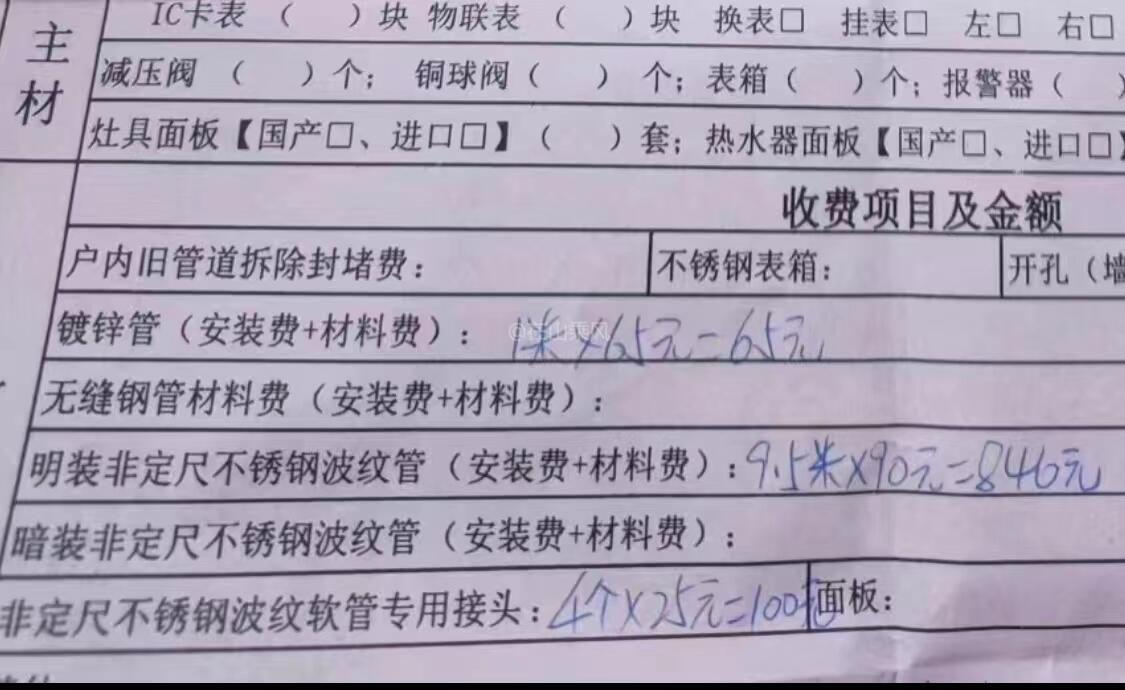 主材
IC卡表（ ）块 物联表（ ）块 换表□ 挂表□ 左□ 右□
减压阀（ ）个；铜球阀（ ）个；表箱（ ）个；报警器（ ）
灶具面板【国产□、进口□】（ ）套；热水器面板【国产□、进口□】
收费项目及金额
户内旧管道拆除封堵费： 不锈钢表箱： 开孔（墙
镀锌管（安装费+材料费）：1米×65元=65元
无缝钢管材料费（安装费+材料费）：
明装非定尺不锈钢波纹管（安装费+材料费）：9.5米×90元=846元
暗装非定尺不锈钢波纹管（安装费+材料费）：
非定尺不锈钢波纹软管专用接头：4个×25元=100元 面板：